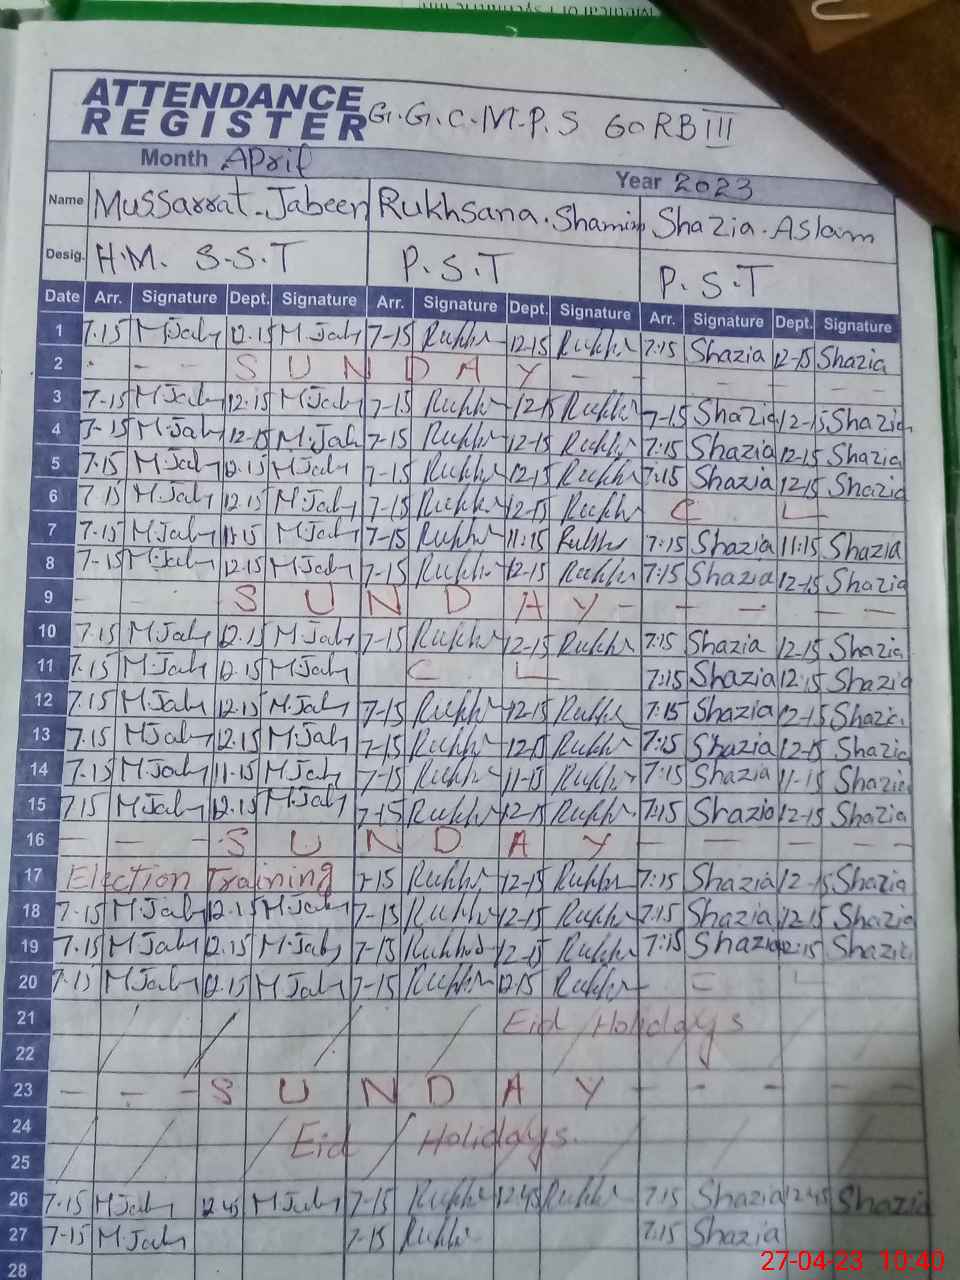 ATTENDANCE
REGISTER G.G.C.M.P.S 60 RB III
Month April Year 2023
Name Mussarrat.Jabeen Rukhsana.Shamim Shazia.Aslam
Desig. H.M. S.S.T P.S.T P.S.T
Date Arr. Signature Dept. Signature Arr. Signature Dept. Signature Arr. Signature Dept. Signature
1 7.15 M.Jab 12.15 M.Jab 7-15 Rukh 12-15 Rukh 7:15 Shazia 12-15 Shazia
2 - - - S U N D A Y - - - - -
3 7-15 M.Jab 12.15 M.Jab 7-15 Rukh 12-15 Rukh 7-15 Shazia 12-15 Shazia
4 7-15 M.Jab 12-15 M.Jab 7-15 Rukh 12-15 Rukh 7:15 Shazia 12-15 Shazia
5 7.15 M.Jab 12.15 M.Jab 7-15 Rukh 12-15 Rukh 7:15 Shazia 12-15 Shazia
6 7.15 M.Jab 12.15 M.Jab 7-15 Rukh 12-15 Rukh C L
7 7.15 M.Jab 11.15 M.Jab 7-15 Rukh 11:15 Rukh 7:15 Shazia 11:15 Shazia
8 7-15 M.Jab 12.15 M.Jab 7-15 Rukh 12-15 Rukh 7:15 Shazia 12-15 Shazia
9 - - S U N D A Y - - - - -
10 7.15 M.Jab 12.15 M.Jab 7-15 Rukh 12-15 Rukh 7:15 Shazia 12-15 Shazia
11 7.15 M.Jab 12.15 M.Jab C L 7:15 Shazia 12:15 Shazia
12 7.15 M.Jab 12.15 M.Jab 7-15 Rukh 12-15 Rukh 7:15 Shazia 12-15 Shazia
13 7.15 M.Jab 12.15 M.Jab 7-15 Rukh 12-15 Rukh 7:15 Shazia 12-15 Shazia
14 7.15 M.Jab 11-15 M.Jab 7-15 Rukh 11-15 Rukh 7:15 Shazia 11-15 Shazia
15 7.15 M.Jab 12.15 M.Jab 7-15 Rukh 12-15 Rukh 7:15 Shazia 12-15 Shazia
16 - - - S U N D A Y - - - - -
17 Election Training 7-15 Rukh 12-15 Rukh 7:15 Shazia 12-15 Shazia
18 7-15 M.Jab 12.15 M.Jab 7-15 Rukh 12-15 Rukh 7:15 Shazia 12:15 Shazia
19 7.15 M.Jab 12.15 M.Jab 7-15 12-15 Rukh 7:15 Shazia 12:15 Shazia
20 7.15 M.Jab 12.15 M.Jab 7-15 Rukh 12.15 Rukh C L
21 Eid Holidays
22
23 - - - S U N D A Y - - - - -
24 Eid Holidays.
25
26 7.15 M.Jab 12.45 M.Jab 7-15 Rukh 12.45 Rukh 7:15 Shazia 12.45 Shazia
27 7-15 M.Jab 7-15 Rukh 7:15 Shazia
28
27-04-23 10:40